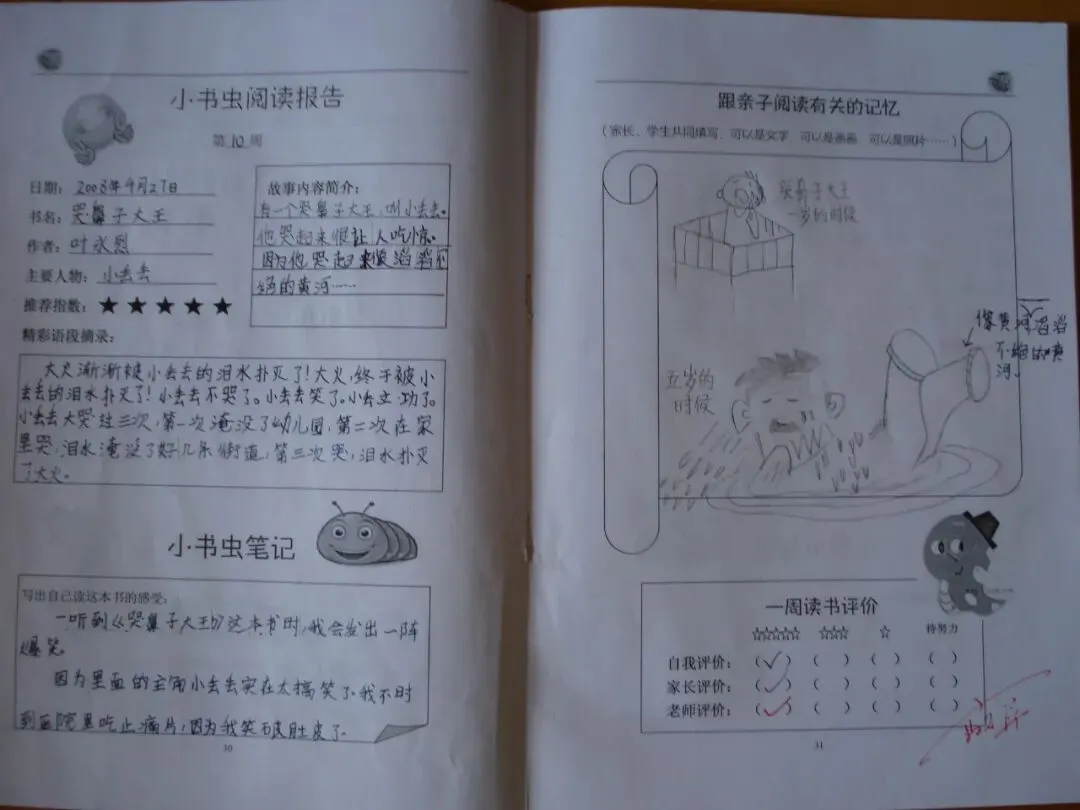 小书虫阅读报告
第10周
日期：2008年9月27日
书名：哭鼻子大王
作者：叶永烈
主要人物：小丢丢
推荐指数：★★★★★
故事内容简介：
有一个哭鼻子大王，叫小丢丢。
他哭起来很让人吃惊。
因为他哭起来像滔滔不
绝的黄河……
精彩语段摘录：
大火渐渐被小丢丢的泪水扑灭了！大火，终于被小
丢丢的泪水扑灭了！小丢丢不哭了。小丢丢笑了。小丢立功了。
小丢丢大哭过三次，第一次淹没了幼儿园，第二次在家
里哭，泪水淹没了好几条街道，第三次哭，泪水扑灭
了大火。
小书虫笔记
写出自己读这本书的感受：
一听到《哭鼻子大王》这本书时，我会发出一阵
爆笑。
因为里面的主角小丢丢实在太搞笑了。我不时
到医院里吃止痛片，因为我笑破肚皮了。
30
跟亲子阅读有关的记忆
（家长、学生共同填写，可以是文字，可以是画画，可以是照片……）
哭鼻子大王
一岁的时候
五岁的
时候
像黄河滔滔
不绝的黄
河。
一周读书评价
☆☆☆☆☆ ☆☆☆ ☆ 待努力
自我评价：（✓） （ ） （ ） （ ）
家长评价：（✓） （ ） （ ） （ ）
老师评价：（✓） （ ） （ ） （ ）
31